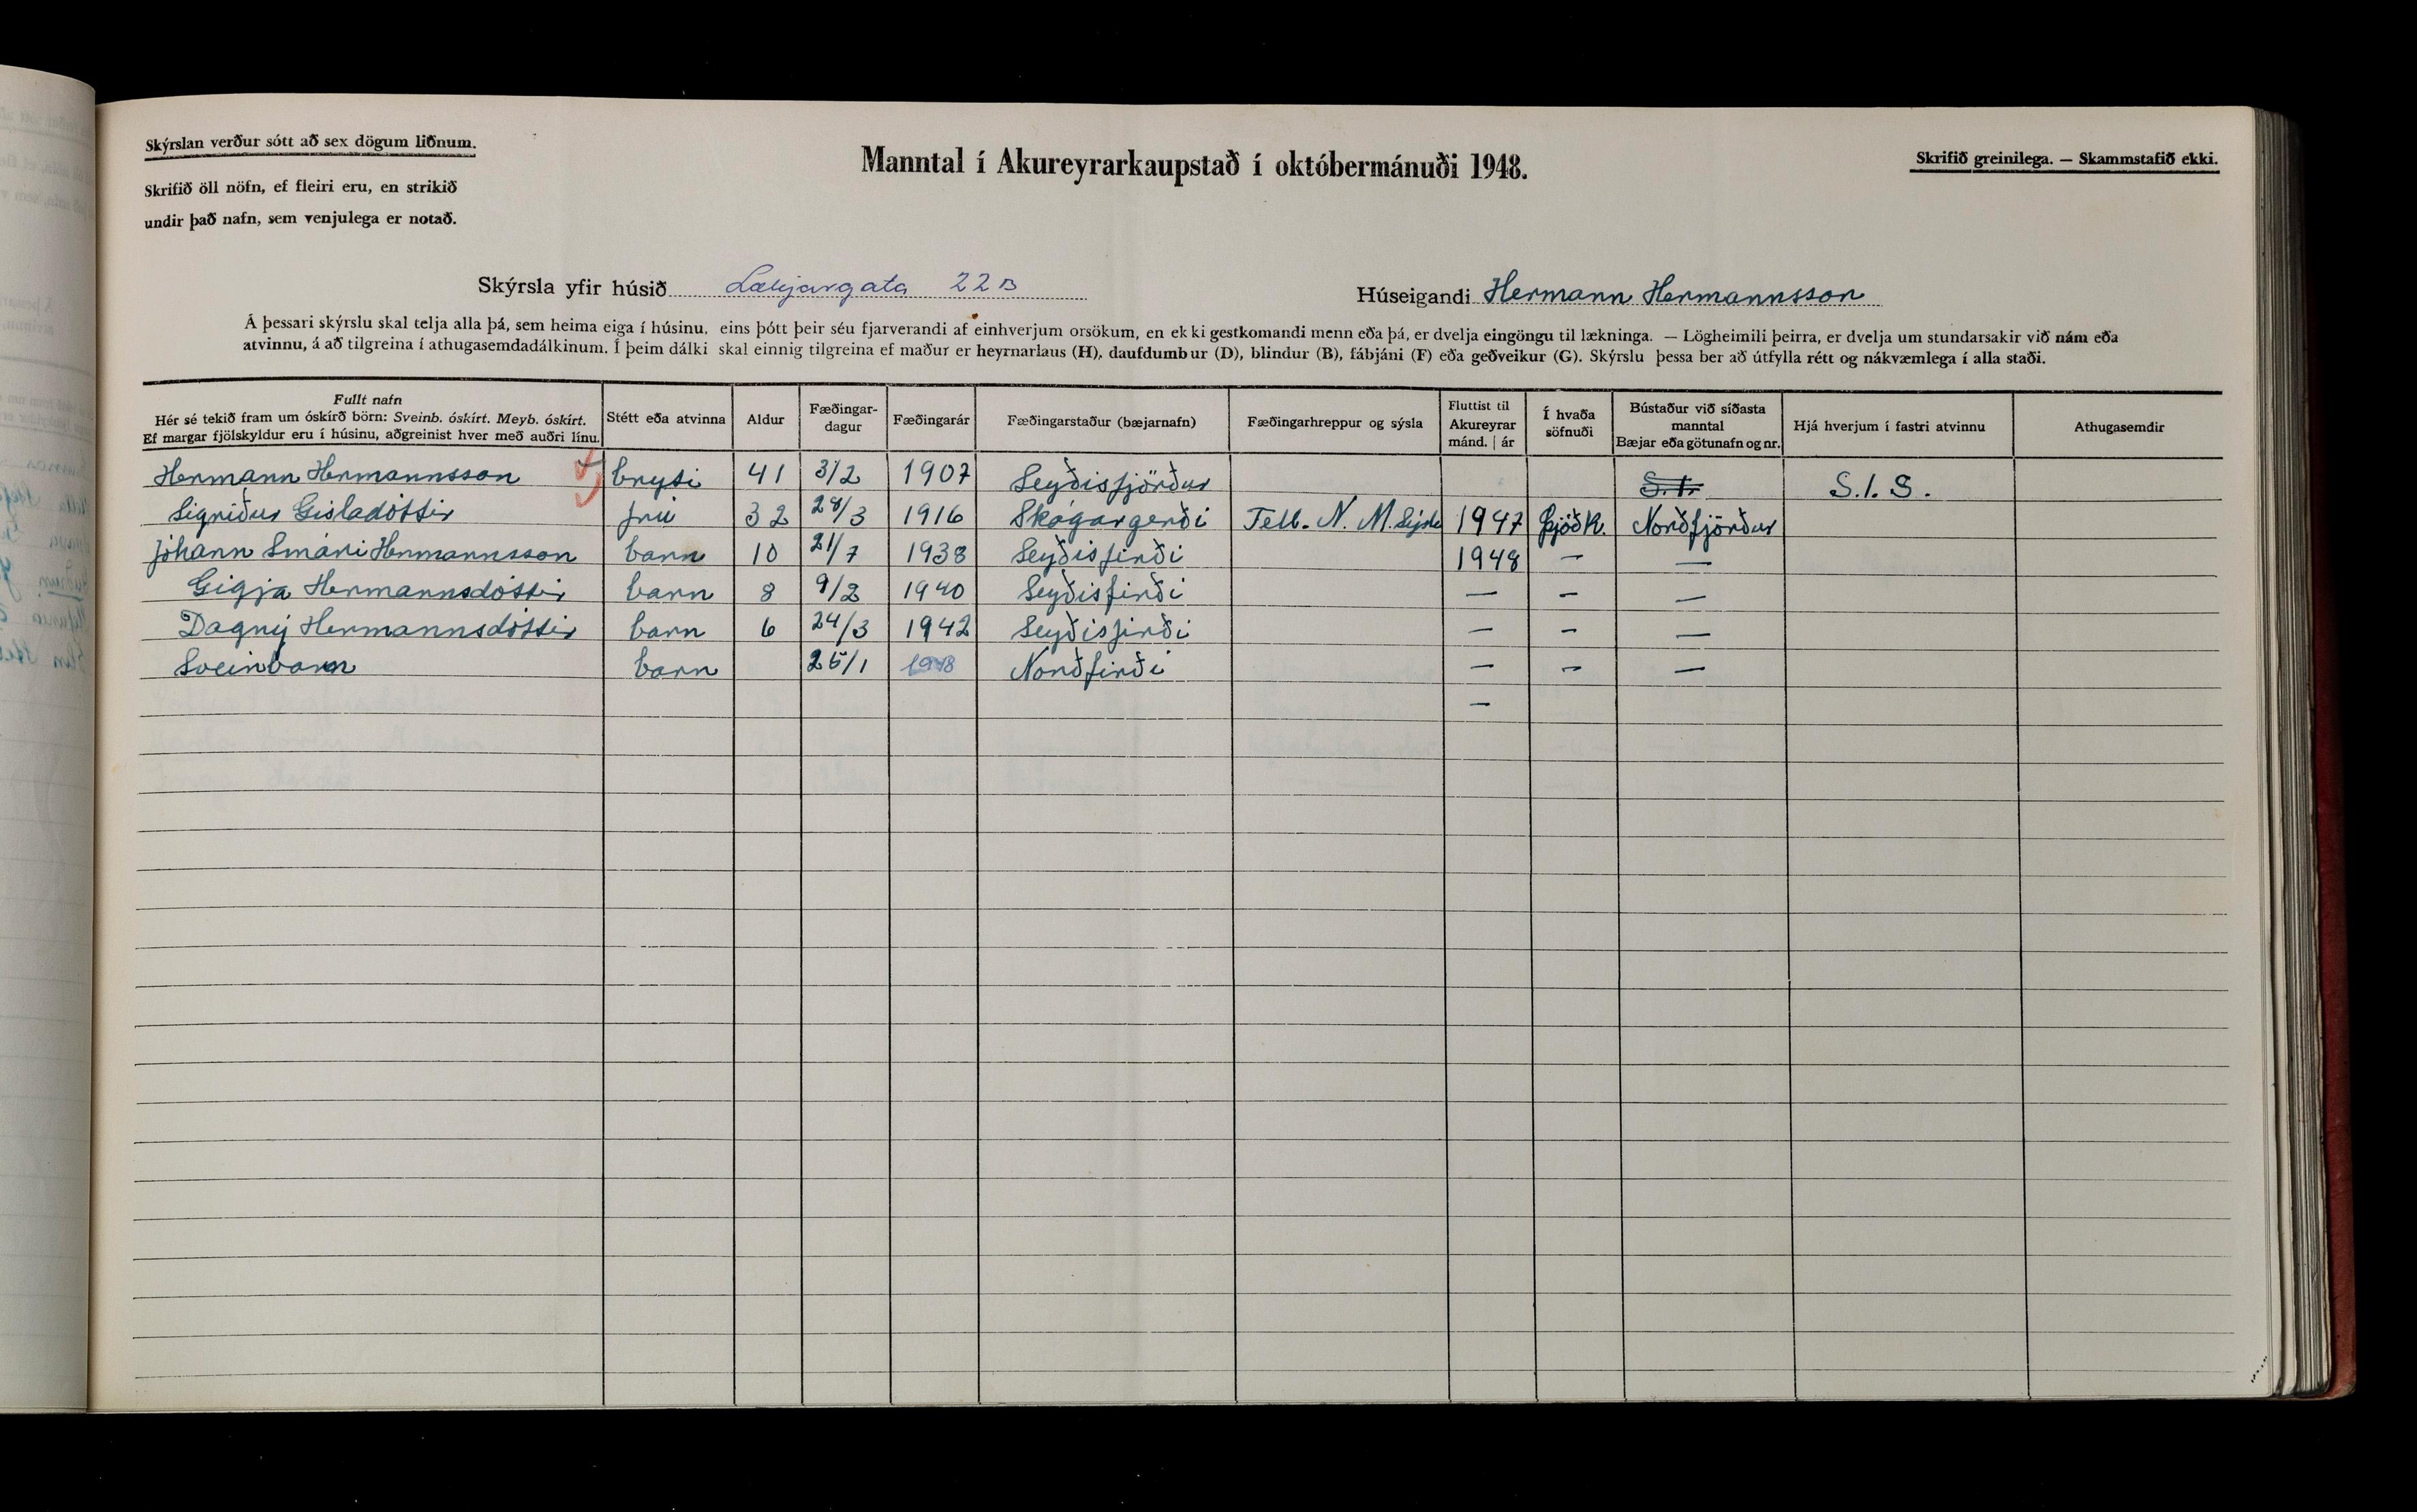 Skýrslan verður sótt að sex dögum liðnum.
Skrifið öll nöfn, ef fleiri eru, en strikið
undir það nafn, sem venjulega er notað.
Manntal í Akureyrarkaupstað í októbermánuði 1948.
Skrifið greinilega. — Skammstafið ekki.
Skýrsla yfir húsið Lækjargata 22B
Húseigandi Hermann Hermannsson
Á þessari skýrslu skal telja alla þá, sem heima eiga í húsinu, eins þótt þeir séu fjarverandi af einhverjum orsökum, en ekki gestkomandi menn eða þá, er dvelja eingöngu til lækninga. — Lögheimili þeirra, er dvelja um stundarsakir við nám eða
atvinnu, á að tilgreina í athugasemdadálkinum. Í þeim dálki skal einnig tilgreina ef maður er heyrnarlaus (H), daufdumbur (D), blindur (B), fábjáni (F) eða geðveikur (G). Skýrslu þessa ber að útfylla rétt og nákvæmlega í alla staði.
Fullt nafn
Hér sé tekið fram um óskírð börn: Sveinb. óskírt. Meyb. óskírt.
Ef margar fjölskyldur eru í húsinu, aðgreinist hver með auðri línu.
Stétt eða atvinna
Aldur
Fæðingar-
dagur
Fæðingarár
Fæðingarstaður (bæjarnafn)
Fæðingarhreppur og sýsla
Fluttist til
Akureyrar
mánd. | ár
Í hvaða
söfnuði
Bústaður við síðasta
manntal
Bæjar eða götunafn og nr.
Hjá hverjum í fastri atvinnu
Athugasemdir
Hermann Hermannsson bryti 41 3/2 1907 Seyðisfjörður S.Í. S.Í.S.
Sigriður Gisladóttir frú 32 28/3 1916 Skógargerði Fell. N. M. Sýsla 1947 Þjóðk. Norðfjörður
Jóhann Smári Hermannsson barn 10 21/7 1938 Seyðisfirði 1948 — —
Gigja Hermannsdóttir barn 8 9/2 1940 Seyðisfirði — — —
Dagný Hermannsdóttir barn 6 24/3 1942 Seyðisfirði — — —
Sveinbarn barn 25/1 1948 Norðfirði — — —
—